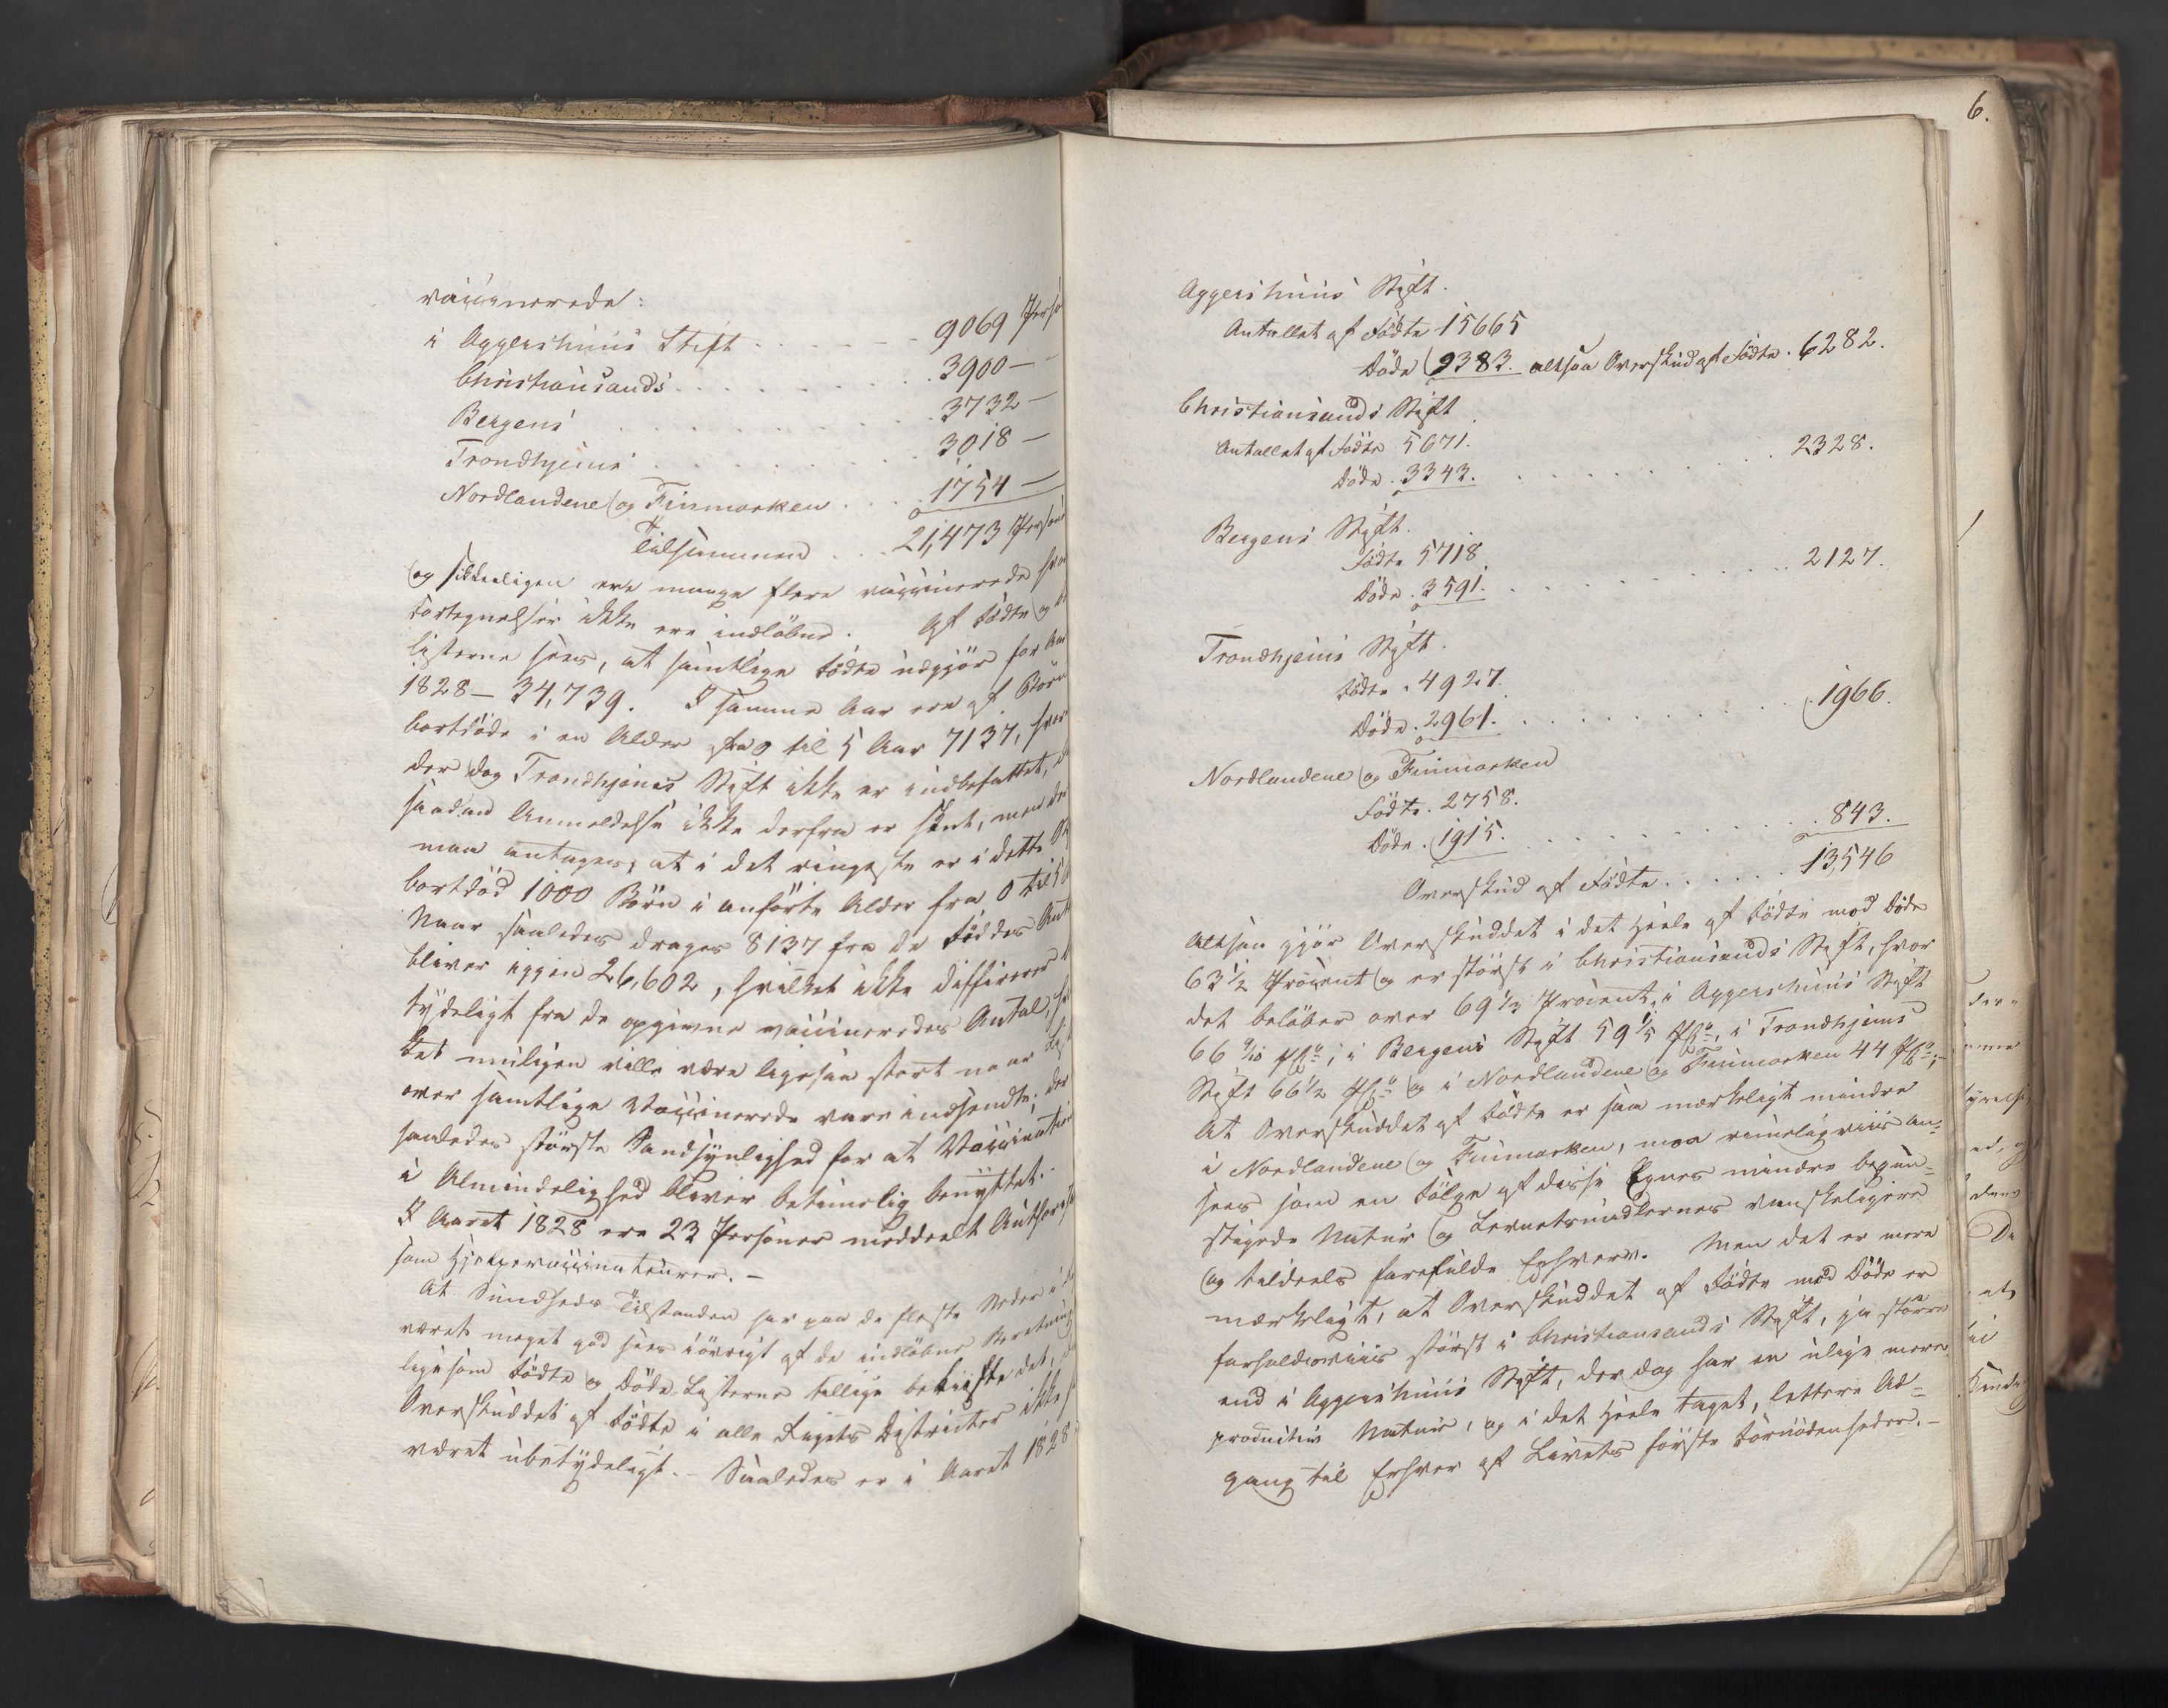 vaccinerede:
i Aggershuus Stift . . . . . . 9069 Perso
Christiansands . . . . . . . . 3900 —
Bergens . . . . . . . . . 3732 —
Trondhjems . . . . . . . . 3018 —
Nordlandene og Finmarken . . . . 1754 —
Tilsammen . . . 21,473 Persone
og sikkerligen ere mange flere vaccinerede hvor
Fortegnelser ikke ere indløbne. Af Fødte og
Listerne sees, at samtlige Fødte udgjør for Aar
1828 – 34,739. I samme Aar ere af Børn
bortdøde i en Alder fra 0 til 5 Aar 7137, hvor
der dog Trondhjems Stift ikke er indbefattet,
saadan Anmeldelse ikke derfra er skeet, men der
maa antages, at i det ringeste er i dette
bortdød 1000 Børn i anførte Alder fra 0 til 5
Naar saaledes drages 8137 fra de Føddes Ant
bliver igjen 26,602, hvilket ikke differerer
tydeligt fra de opgivne vaccineredes Antal,
Det muligen ville være ligesaa stort naar
over samtlige Vaccinerede vare indsendte; der
saaledes største Sandsynlighed for at Vaccination
i Almindelighed bliver betimelig benyttet.
I Aaret 1828 ere 23 Personer meddeelt Authoris
som Hjelpevaccinateurer. –
At Sundheds Tilstanden har paa de fleste Steder i
været meget god sees iøvrigt af de indløbne Beretning
ligesom Fødte og Døde Listerne tillige beviiste det,
Overskuddet af Fødte i alle Rigets Districter ikke
været ubetydeligt. – Saaledes er i Aaret 1828
6.
Aggershuus Stift.
Antallet af Fødte 15665
Døde 9383. altsaa Overskud af Fødte. 6282.
Christiansands Stift
Antallet af Fødte 5671.
Døde. 3343. . . . . . . . . . 2328.
Bergens Stift.
Fødte 5718.
Døde. 3591. . . . . . . . . . 2127.
Trondhjems Stift.
Fødte. 4927.
Døde. 2961. . . . . . . . . . 1966.
Nordlandene og Finmarken
Fødte. 2758.
Døde. 1915. . . . . . . . . . 843.
Overskud af Fødte . . . . . . 13,546
Altsaa gjør Overskuddet i det Hele af Fødte mod Døde
63 1/2 Procent og er størst i Christiansands Stift, hvor
det beløber over 69 1/3 Procent, i Aggershuus Stift
66 9/10 pCt; i Bergens Stift 59 1/5 pCt, i Trondhjems
Stift 66 1/2 pCt og i Nordlandene og Finmarken 44 pCt; –
At Overskuddet af Fødte er saa mærkeligt mindre
i Nordlandene og Finmarken, maa rimeligviis an=
sees som en Følge af disse Egnes mindre begun=
stigede Natur og Levnetsmidlernes vanskeligere
og tildeels farefulde Erhverv. Men det er mere
mærkeligt, at Overskuddet af Fødte mod Døde er
forholdsviis størst i Christiansands Stift, ja større
end i Aggershuus Stift, der dog har en ulige mere
productiv Natur, og i det Hele taget, lettere Ad=
gang til Erhver af Livets første Fornødenheder. –